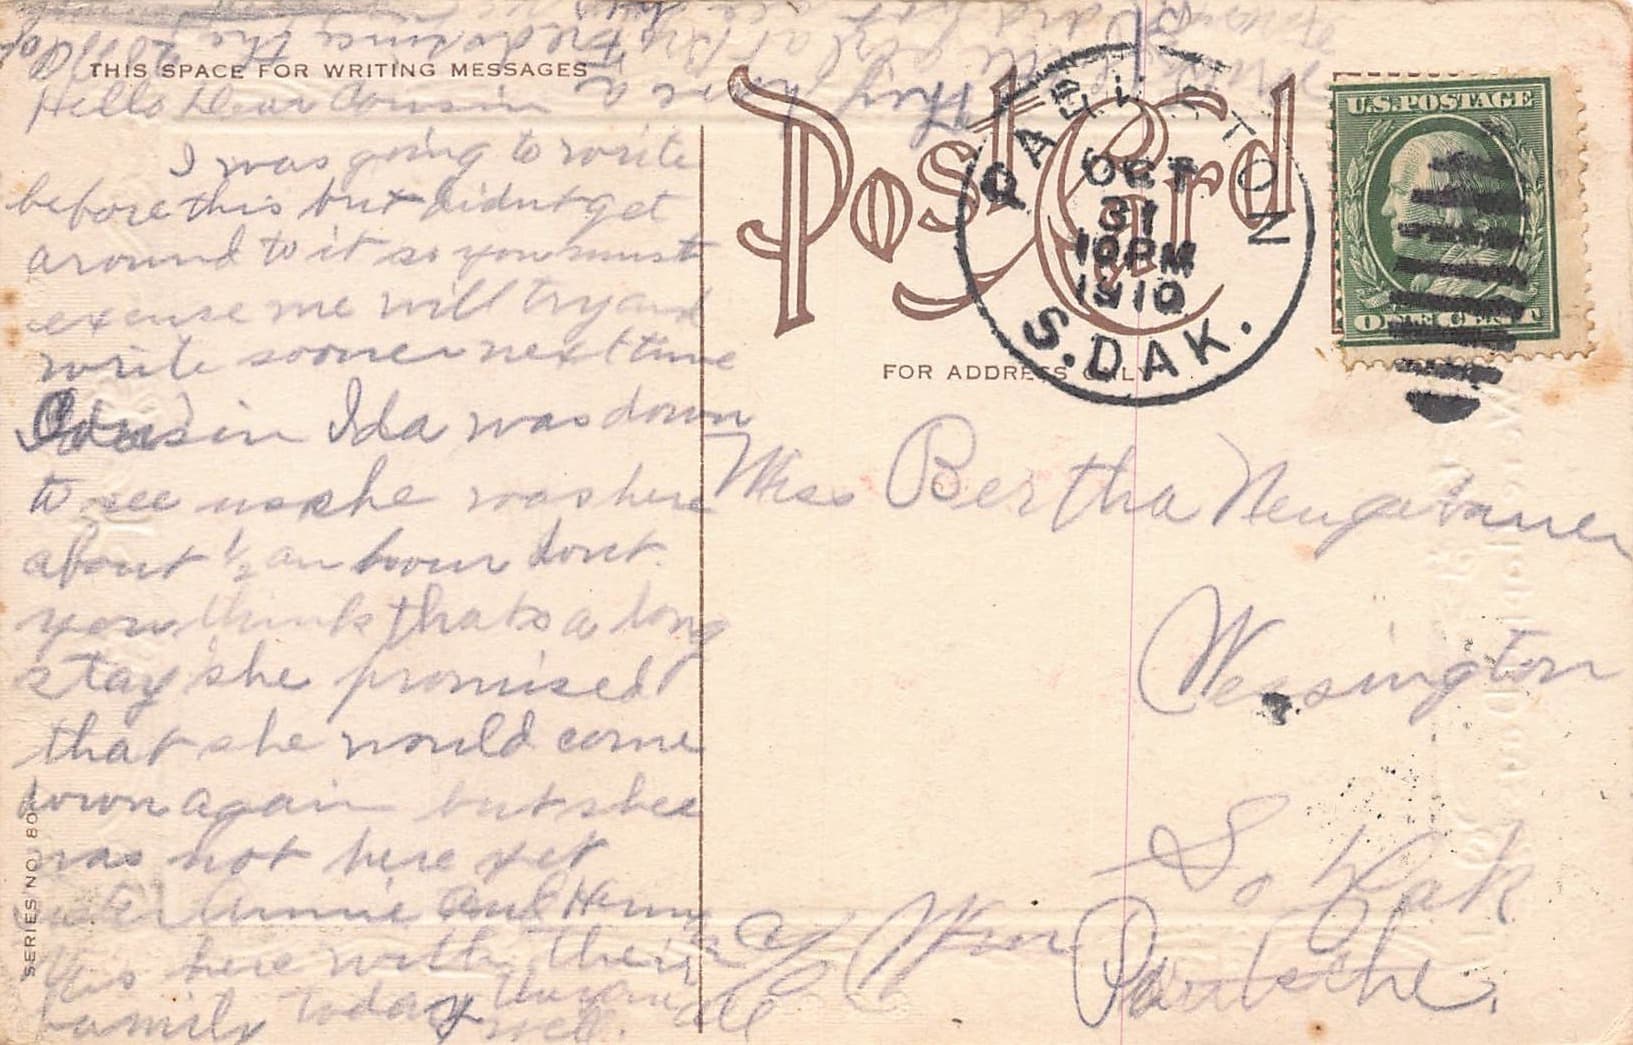 THIS SPACE FOR WRITING MESSAGES
Hello Dear Cousin
I was going to write
before this but didnt get
around to it so you must
excuse me will try and
write sooner next time
Cousin Ida was down
to see us she was here
about ½ an hour dont
you think thats a long
stay she promised
that she would come
down again but shee
was not here yet
sister Annie and Henry
is here with their
family today
well.
all
they have a
SERIES NO. 80
Post Card
FOR ADDRESS ONLY
PARKSTON
OCT
31
10 PM
1910
S. DAK.
U.S. POSTAGE
ONE CENT
Miss Bertha Neugebauer
Wessington
So Dak
c/o Wm